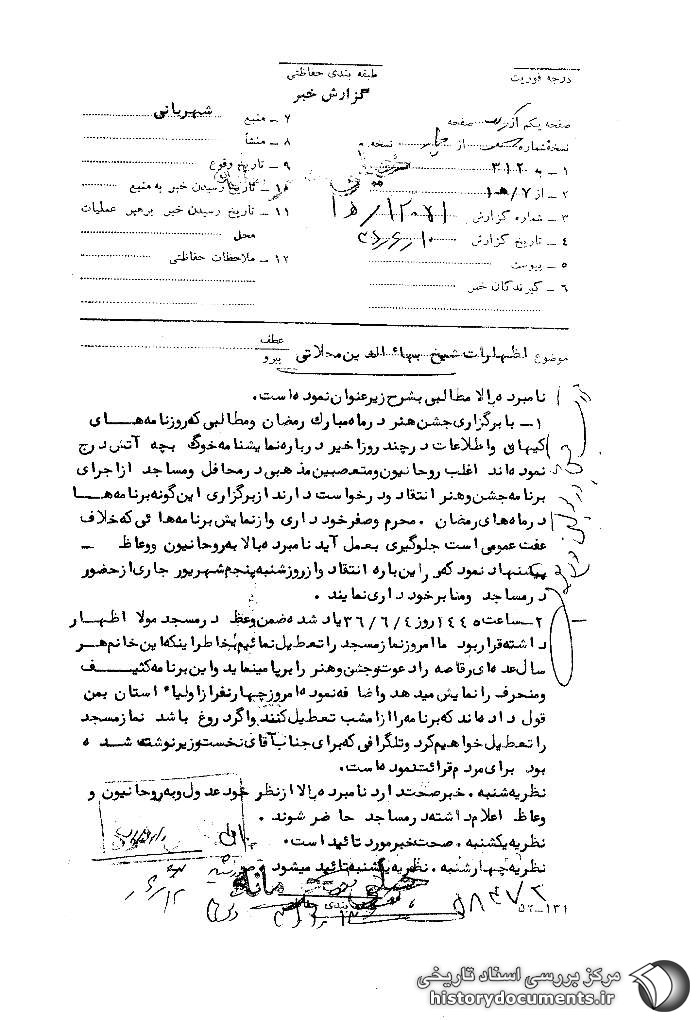 درجه فوریت
طبقه بندی حفاظتی
گزارش خبر
صفحه یکم از صفحه
نسخه شماره از نسخه
۱ – به ۳۱۲
۲ – از ۷/ه۱
۳ – شماره گزارش
۴ – تاریخ گزارش
۵ – پیوست
۶ – گیرندگان خبر
۷ – منبع شهربانی
۸ – منشأ
۹ – تاریخ وقوع
۱۰ – تاریخ رسیدن خبر به منبع
۱۱ – تاریخ رسیدن خبر برهبر عملیات
محل
۱۲ – ملاحظات حفاظتی
عطف
موضوع اظهارات شیخ بهاءالدین محلاتی
پیرو
نامبرده بالا مطالبی بشرح زیر عنوان نموده است.
۱ – با برگزاری جشن هنر در ماه مبارک رمضان و مطالبی که روزنامه های
کیهان و اطلاعات در چند روز اخیر درباره نمایشنامه خوک بچه آتش درج
نموده اند اغلب روحانیون و متعصبین مذهبی در محافل و مساجد از اجرای
برنامه جشن و هنر انتقاد و درخواست دارند از برگزاری این گونه برنامه ها
در ماه های رمضان . محرم و صفر خود داری و از نمایش برنامه هائی که خلاف
عفت عمومی است جلوگیری بعمل آید نامبرده بالا به روحانیون و وعاظ –
پیشنهاد نمود که در این باره انتقاد و از روز شنبه پنجم شهریور جاری از حضور
در مساجد و منابر خود داری نمایند .
۲ – ساعت ۱۴۴۵ روز ۳۶/۶/۴ یاد شده ضمن وعظ در مسجد مولا اظهار
داشته قرار بود ما امروز نماز مسجد را تعطیل نمائیم بخاطر اینکه این خانم هر
سال عده ای رقاصه را دعوت و جشن و هنر را برپا مینماید و این برنامه کثیف
و منحرف را نمایش میدهد و اضافه نموده امروز چهار نفر از اولیاء استان بمن
قول داده اند که برنامه را از امشب تعطیل کنند و اگر دروغ باشد نماز مسجد
را تعطیل خواهیم کرد و تلگرافی که برای جناب آقای نخست وزیر نوشته شده
بود برای مردم قرائت نموده است.
نظریه شنبه . خبر صحت دارد نامبرده بالا از نظر خود عدول و به روحانیون و
وعاظ اعلام داشته در مساجد حاضر شوند .
نظریه یکشنبه . صحت خبر مورد تائید است .
نظریه چهارشنبه . نظریه یکشنبه تائید میشود
۵۲–۱۳۱
مرکز بررسی اسناد تاریخی
historydocuments.ir